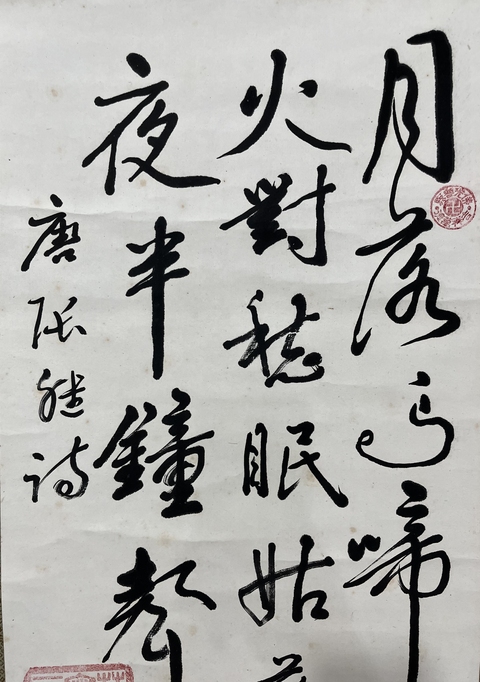 月落烏啼
火對愁眠姑
夜半鐘聲
唐張継詩